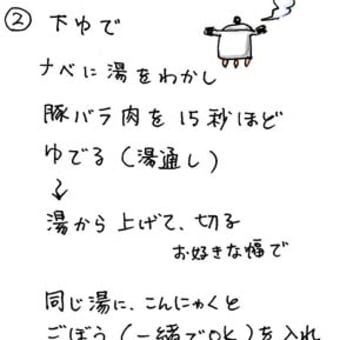 ② 下ゆで
ナベに湯をわかし
豚バラ肉を15秒ほど
ゆでる(湯通し)
↓
湯から上げて、切る
お好きな幅で
同じ湯に、こんにゃくと
ごぼう(一緒でOK)を入れ